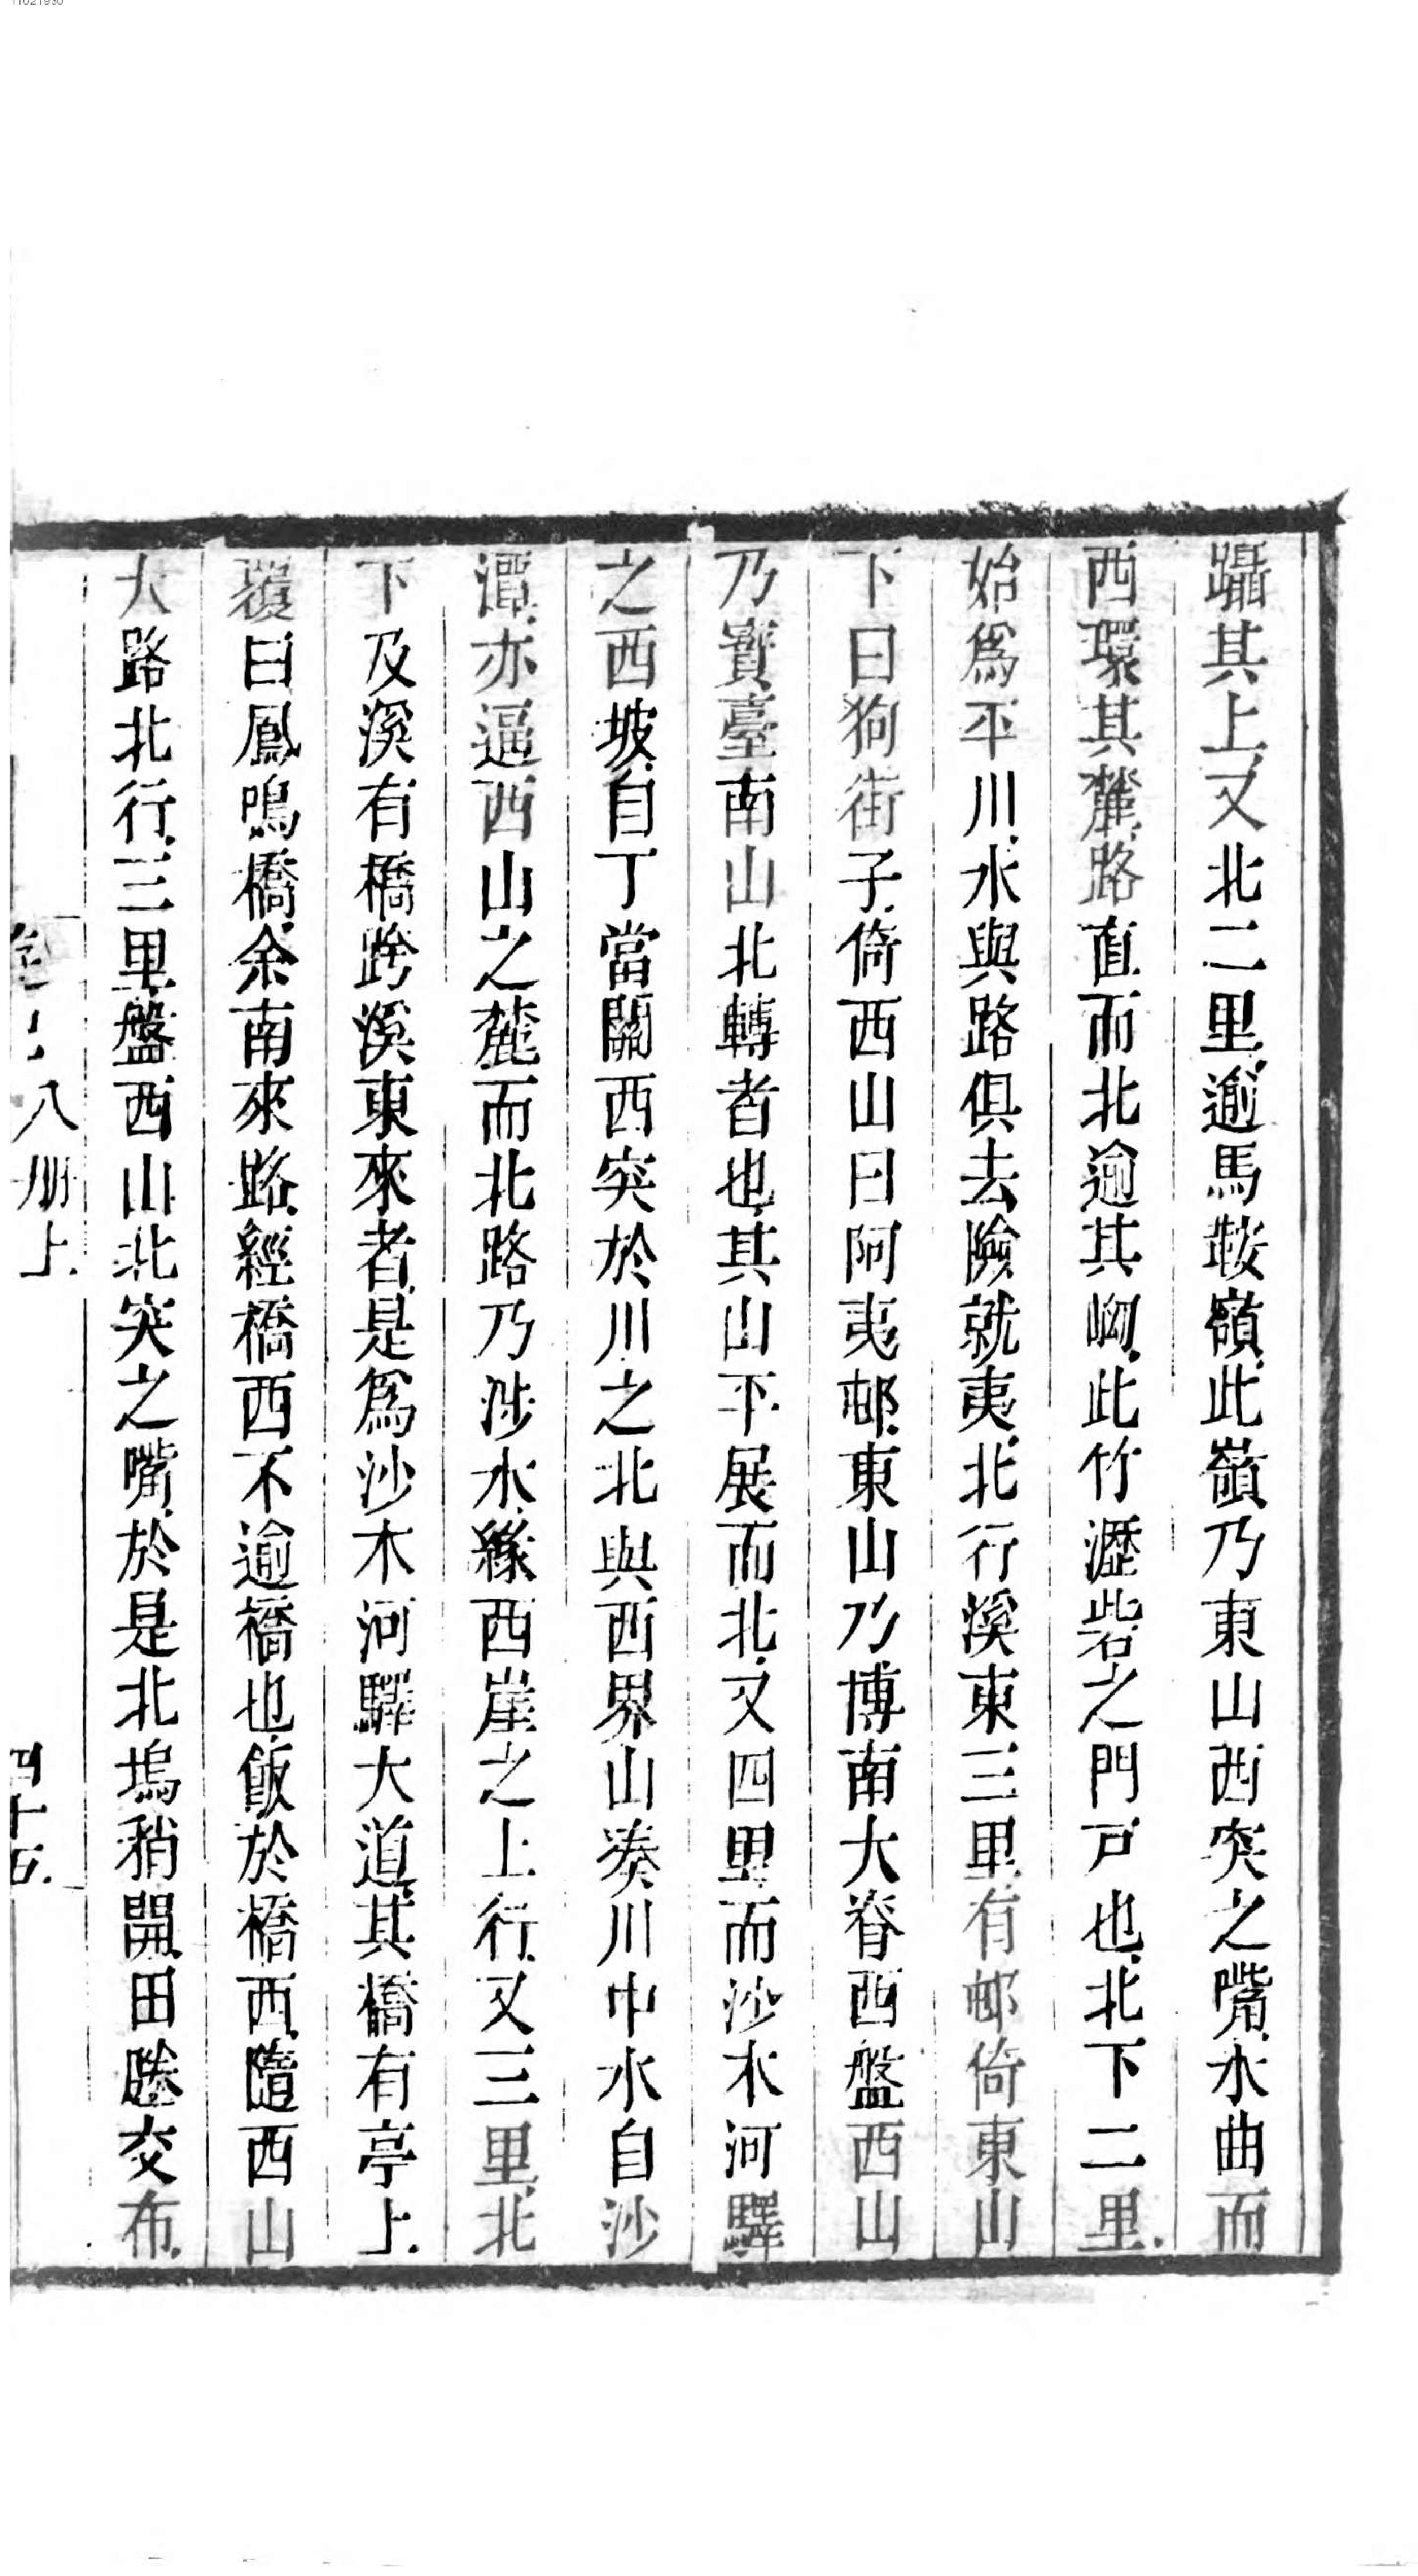 11021930
躡其上、又北二里、逾馬鞍嶺、此嶺乃東山西突之嘴、水曲而
西環其麓、路直而北逾其㘭、此竹瀝砦之門戸也、北下二里、
始爲平川、水與路俱去險就夷、北行溪東三里、有邨倚東山
下曰狗街子、倚西山曰阿夷邨、東山乃博南大脊西盤西山
乃寳臺南山北轉者也、其山平展而北、又四里而沙木河驛
之西坡、自丁當關西突於川之北與西界山湊川中水自沙
潭、亦逼西山之麓而北路乃涉水、緣西崖之上行、又三里、北
下及溪有橋跨溪東來者、是爲沙木河驛大道、其橋有亭上、
覆曰鳳鳴橋、余南來路、經橋西不逾橋也、飯於橋西、隨西山
大路北行、三里、盤西山北突之嘴、於是北塢稍開、田塍交布、
八册上、
四十五、